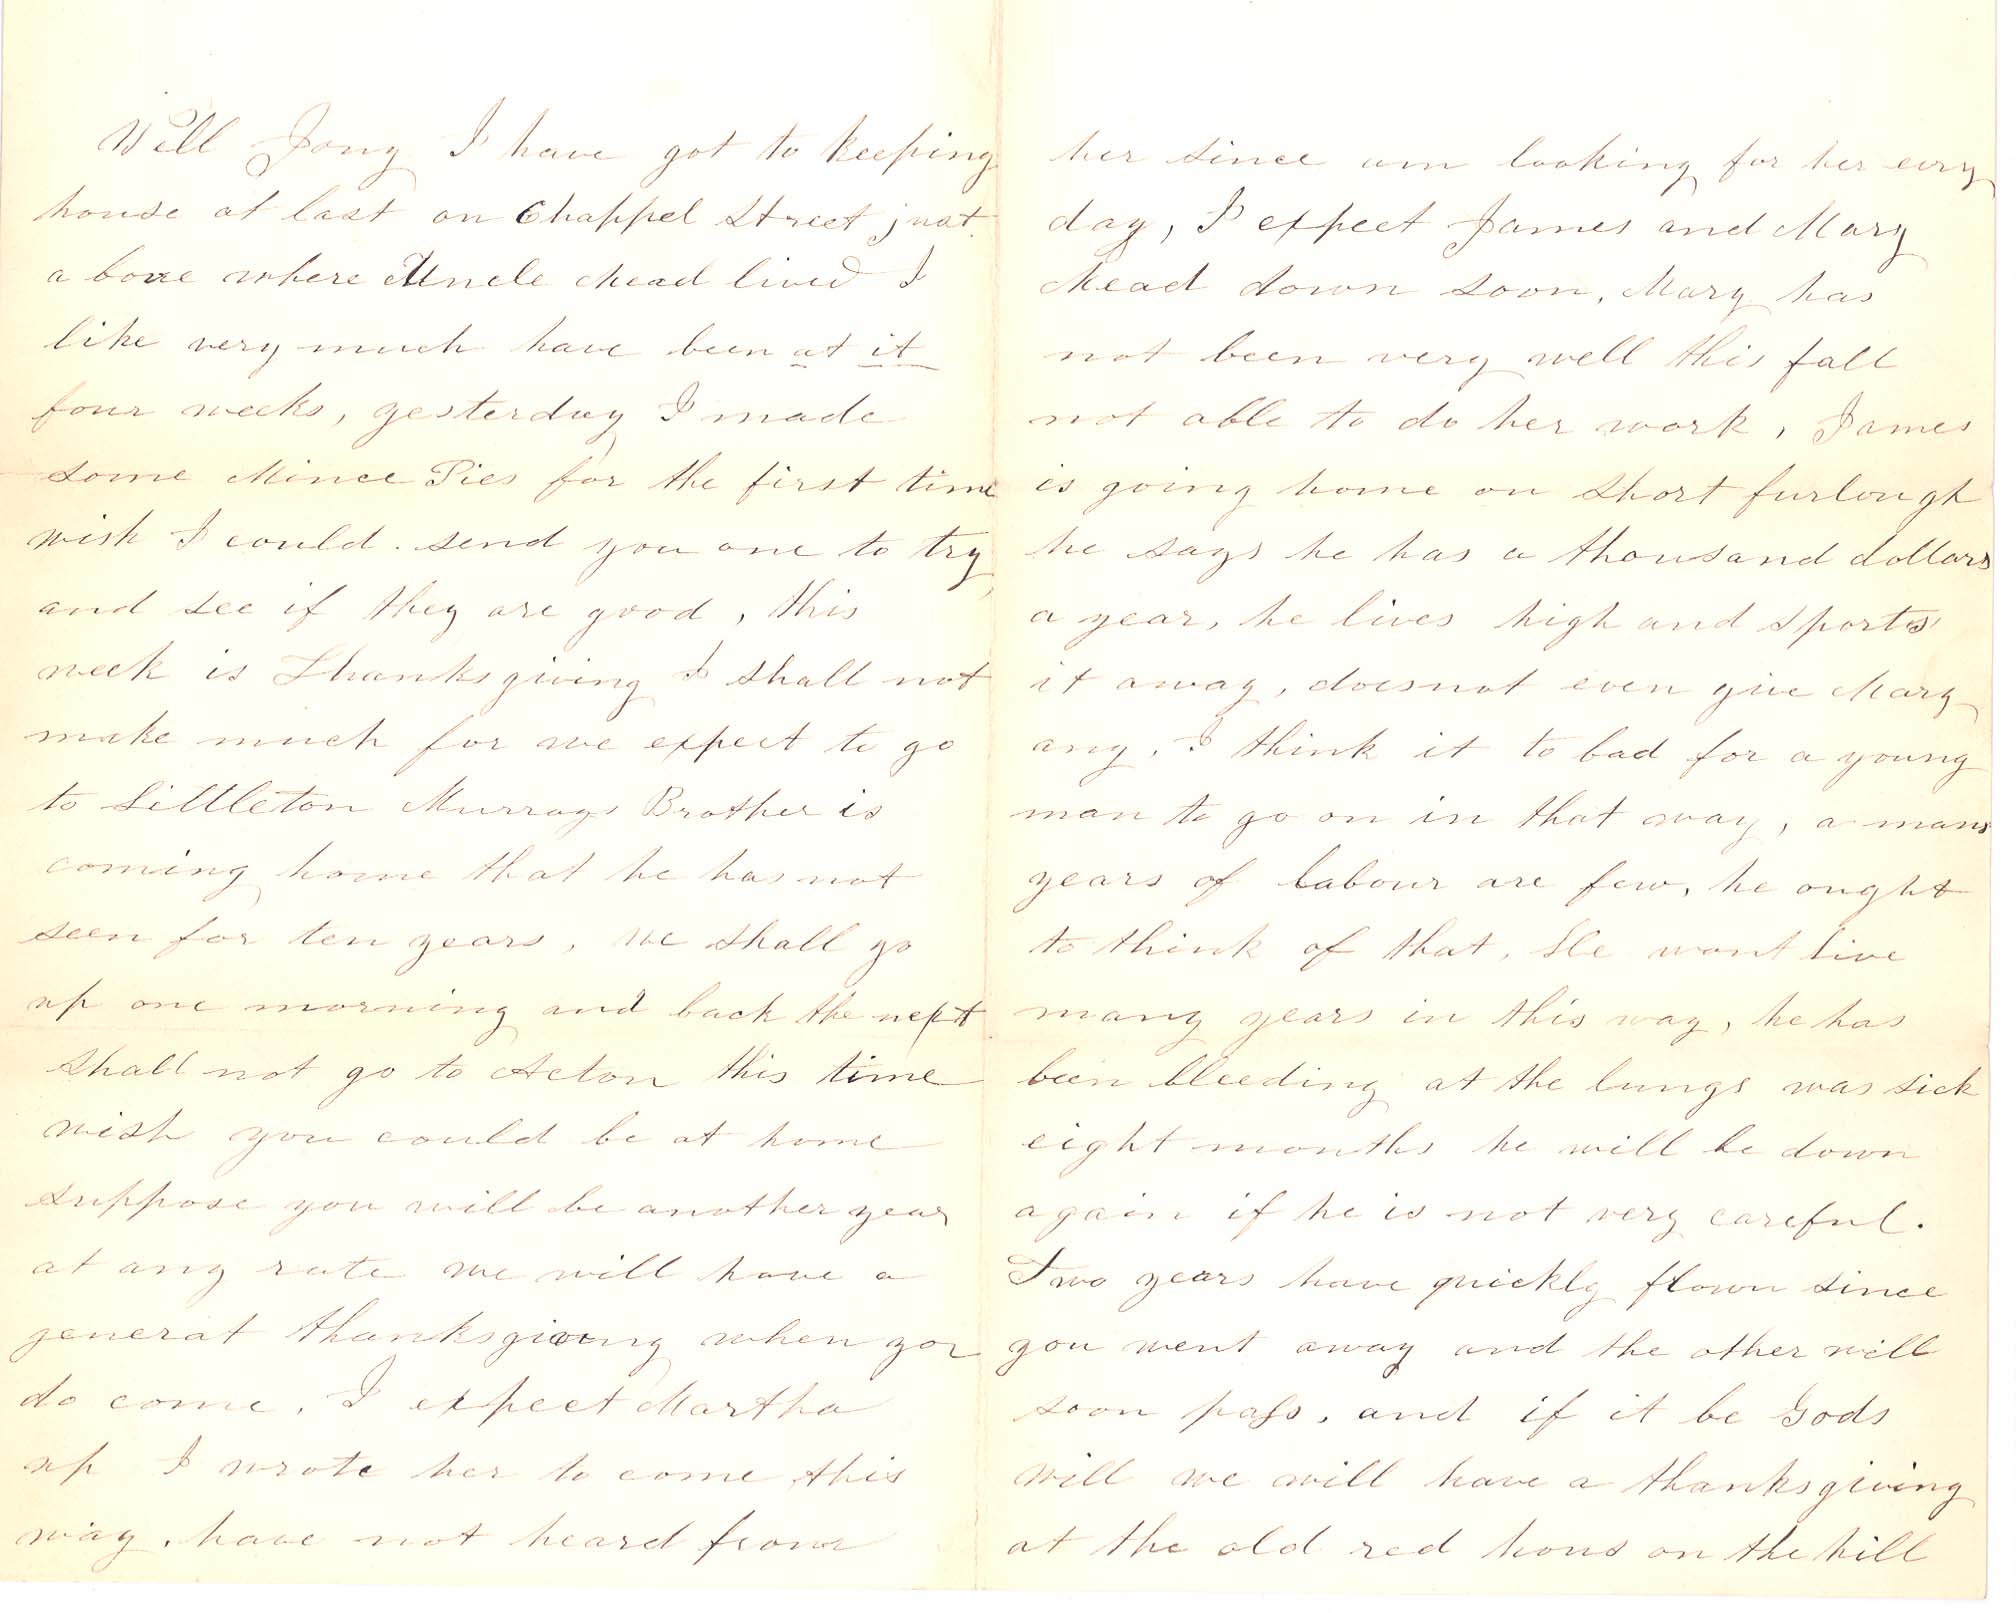 Well Jony I have got to keeping
house at last on Chappel Street just
a bove where Uncle Mead lived I
like very much have been at it
four weeks, yesterday I made
some Mince Pies for the first time
wish I could . send you one to try
and see if they are good , this
week is Thanksgiving I shall not
make much for we expect to go
to Littleton Murrays Brother is
coming home that he has not
seen for ten years, we shall go
up one morning and back the next
shall not go to Acton this time
wish you could be at home
suppose you will be another year
at any rate we will have a
generat thanksgiving when you
do come , I expect Martha
up I wrote her to come this
way , have not heard from
her since am looking for her evry
day, I expect James and Mary
Mead down soon, Mary has
not been very well this fall
not able to do her work , James
is going home on short furlough
he says he has a thousand dollars
a year, he lives high and sports
it away, doesnot even give Mary
any , I think it to bad for a young
man to go on in that way, a mans
years of labour are few, he ought
to think of that, He wont live
many years in this way, he has
been bleeding at the lungs was sick
eight months he will be down
again if he is not very careful.
Two years have quickly flown since
you went away and the other will
soon pass, and if it be Gods
will we will have a thanksgiving
at the old red hous on the hill